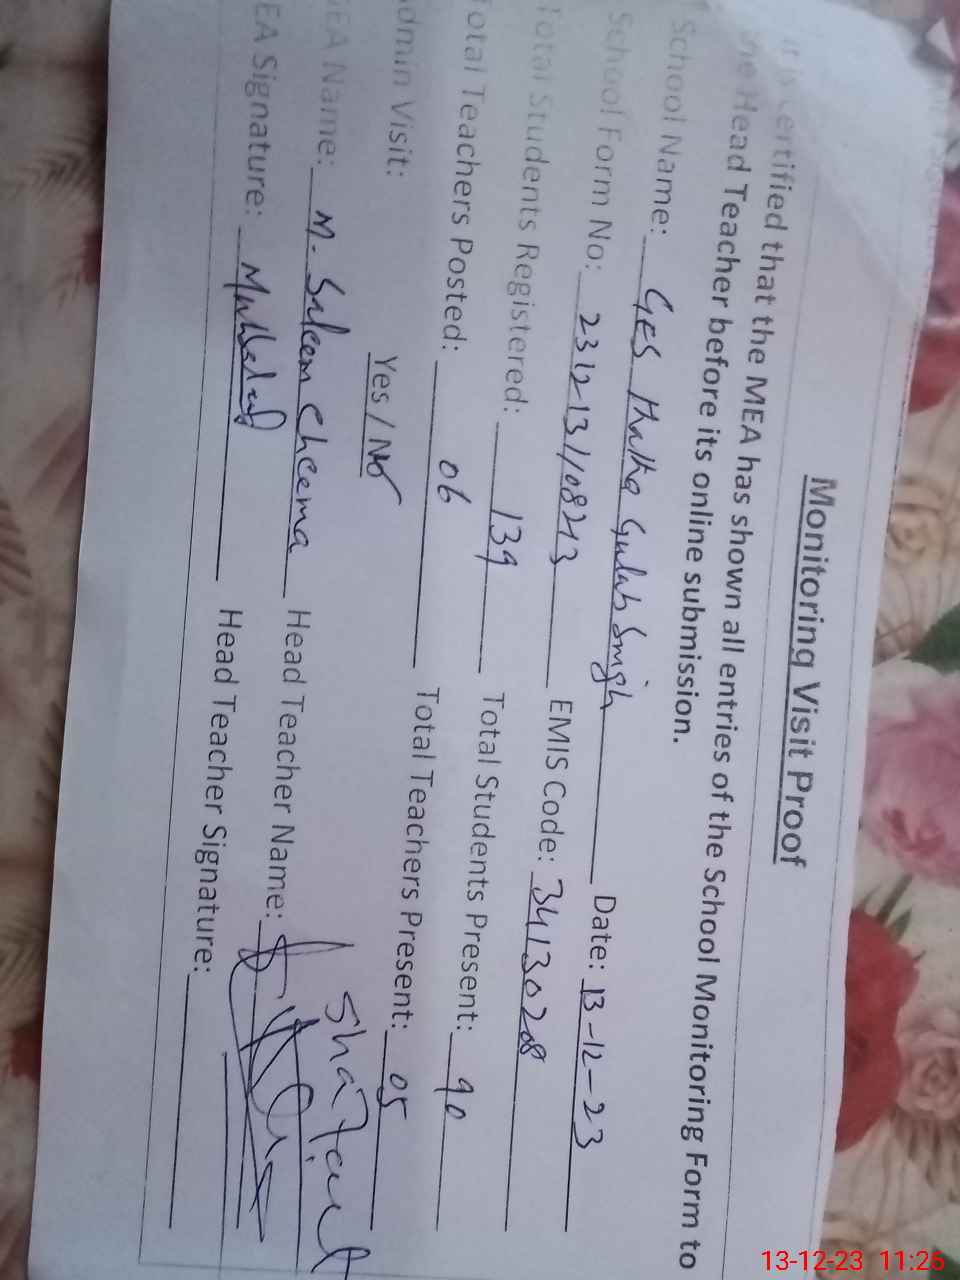 Monitoring Visit Proof
It is certified that the MEA has shown all entries of the School Monitoring Form to
the Head Teacher before its online submission.
School Name: GES Thatha Gulab Singh Date: 13-12-23
School Form No: 2312131/08213 EMIS Code: 34130208
Total Students Registered: 139 Total Students Present: 90
Total Teachers Posted: 06 Total Teachers Present: 05
Admin Visit: Yes / No
MEA Name: M. Saleem Cheema Head Teacher Name:
MEA Signature: Head Teacher Signature:
13-12-23 11:26